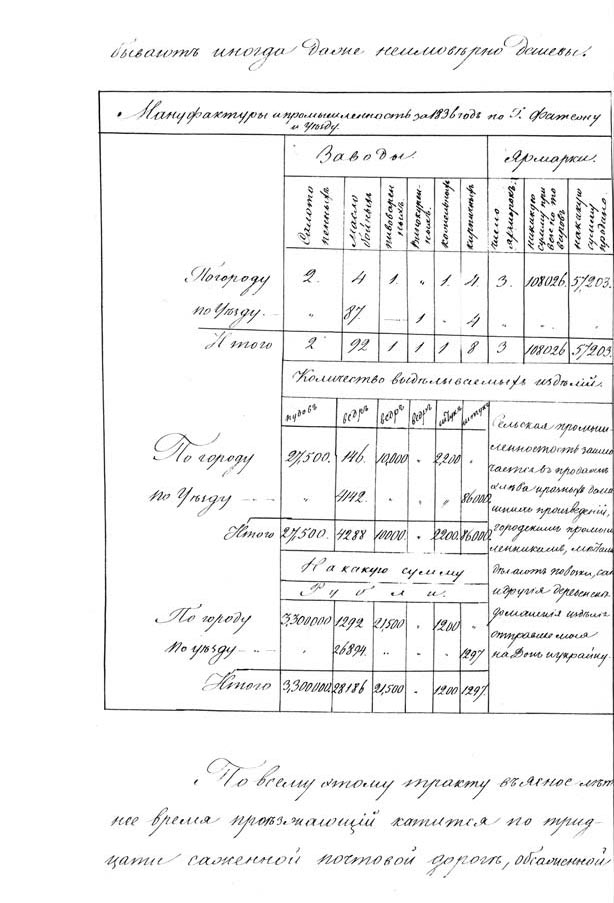 бываютъ иногда даже неимовѣрно дешевы.
Мануфактуры и промышленность за 1836 годъ по Г. Фатежу
и Уѣзду.
Заводы. Ярмарки.
Салото пенныхъ Масло бойныхъ пивоварен ныхъ. Винокурен ныхъ. кирпичныхъ число ярмарокъ. на какую сумму при везено то варовъ на какую сумму продано.
По городу 2. 4 1. „ 1. 4. 3. 108026. 57203.
по Уѣзду „ 87. — 1 „ 4 „ „ „
Итого 2 92 1 1 1 8 3 108026 57203.
Количество выдѣлываемыхъ издѣлій.
пудовъ ведръ ведръ ведръ штукъ штукъ
По городу 27,500. 146. 10,000 „ 2,200 „
по Уѣзду „ 4142. „ „ „ 86000.
Итого 27,500. 4288 10000. „ 2200. 86000.
На какую сумму
Рубли.
По городу 3,300000 1292 21,500 „ 1200 „
По уѣзду „ 26894. „ „ „ 1297
Итого 3,300000. 28186 21,500 „ 1200 1297.
Сельская промыш
ленность заклю
чается въ продажѣ
хлѣба и разныхъ дома
шнихъ произведеній,
городскимъ промыш
ленникамъ,
дѣлаютъ повозки, сан
и другія деревенск
домашнія издѣл
отправляемыя
на Донъ и украйну.
По всему этому тракту въ ясное лѣт
нее время проѣзжающій катится по трид-
цати саженной почтовой дорогѣ, обсаженной